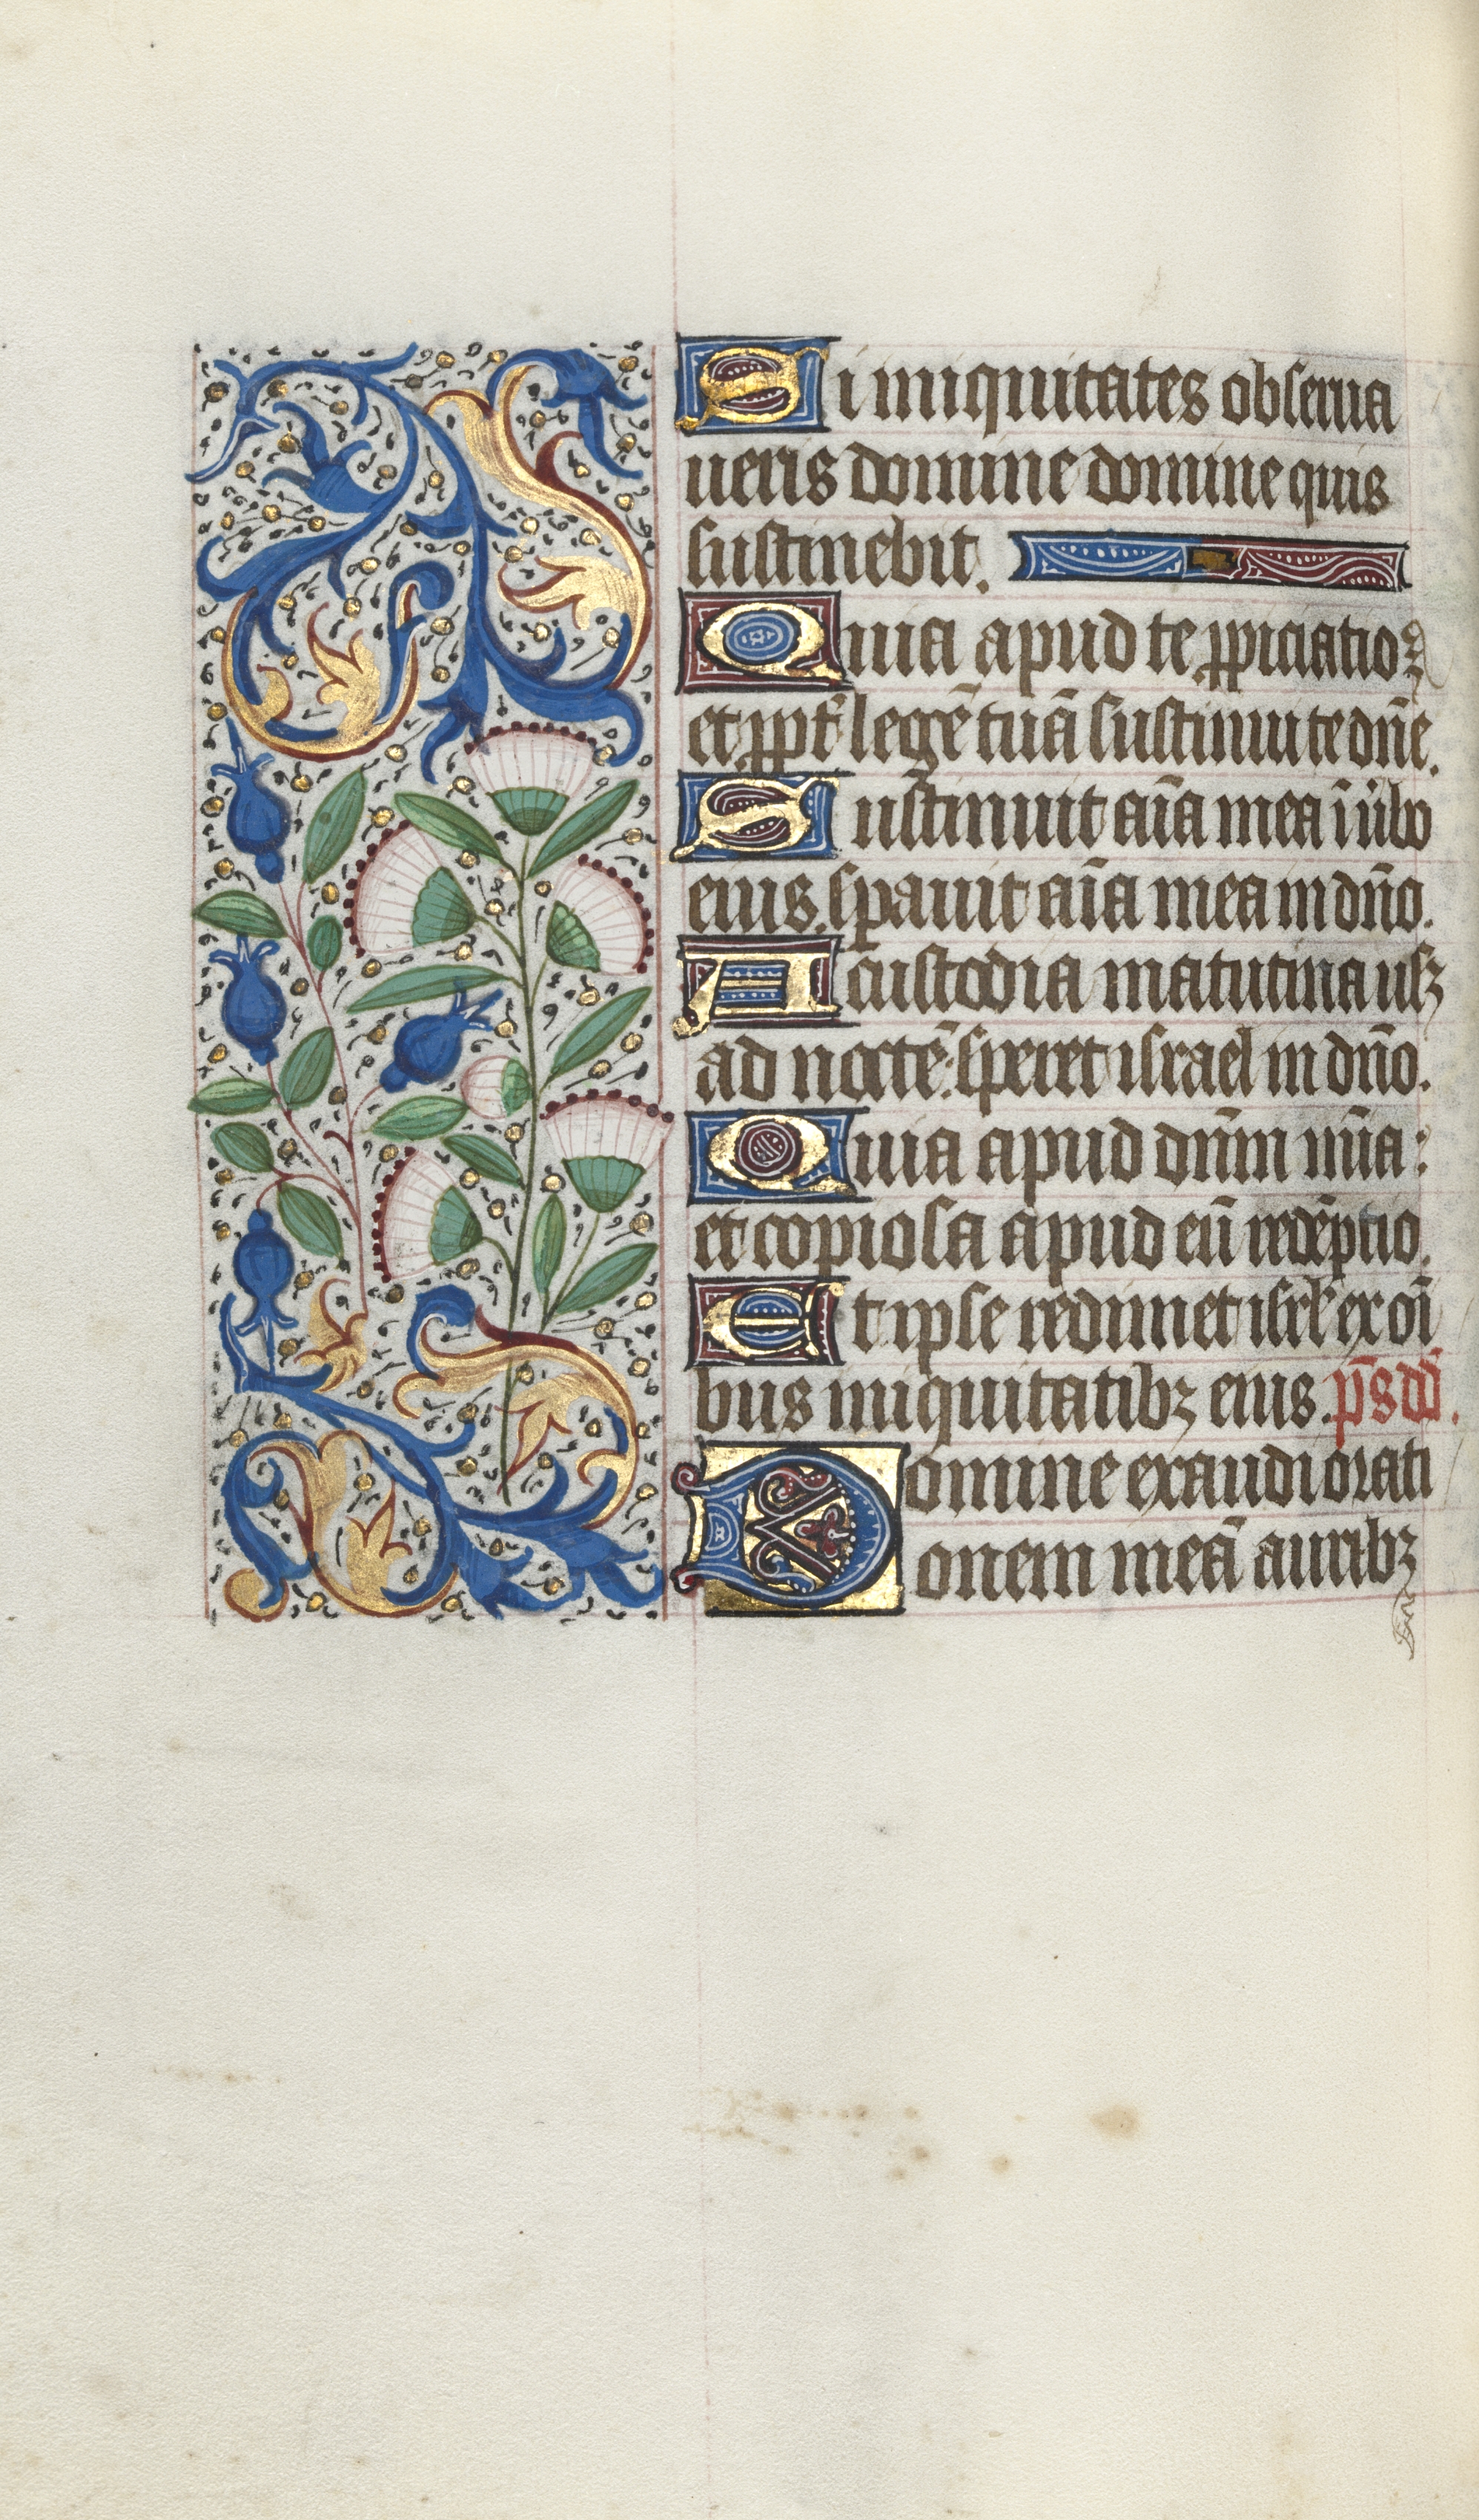 Si iniquitates obserua
ueris domine domine quis
sustinebit.
Quia apud te ꝓpiciatio
et ꝓpt̛ legē tuā sustinui te dn̄e.
Sustinuit aīa mea ī ūbo
eius. spauit aīa mea in dn̄o.
A custodia matutina usqꝫ
ad noctē: speret israel in dn̄o.
Quia apud dn̄m mīa:
et copiosa apud eū redēptio.
Et ipse redimet isrl̛ ex oī
bus iniquitatibꝫ eius. p̄s dd̄.
Domine exaudi orati
onem meā auribꝫ